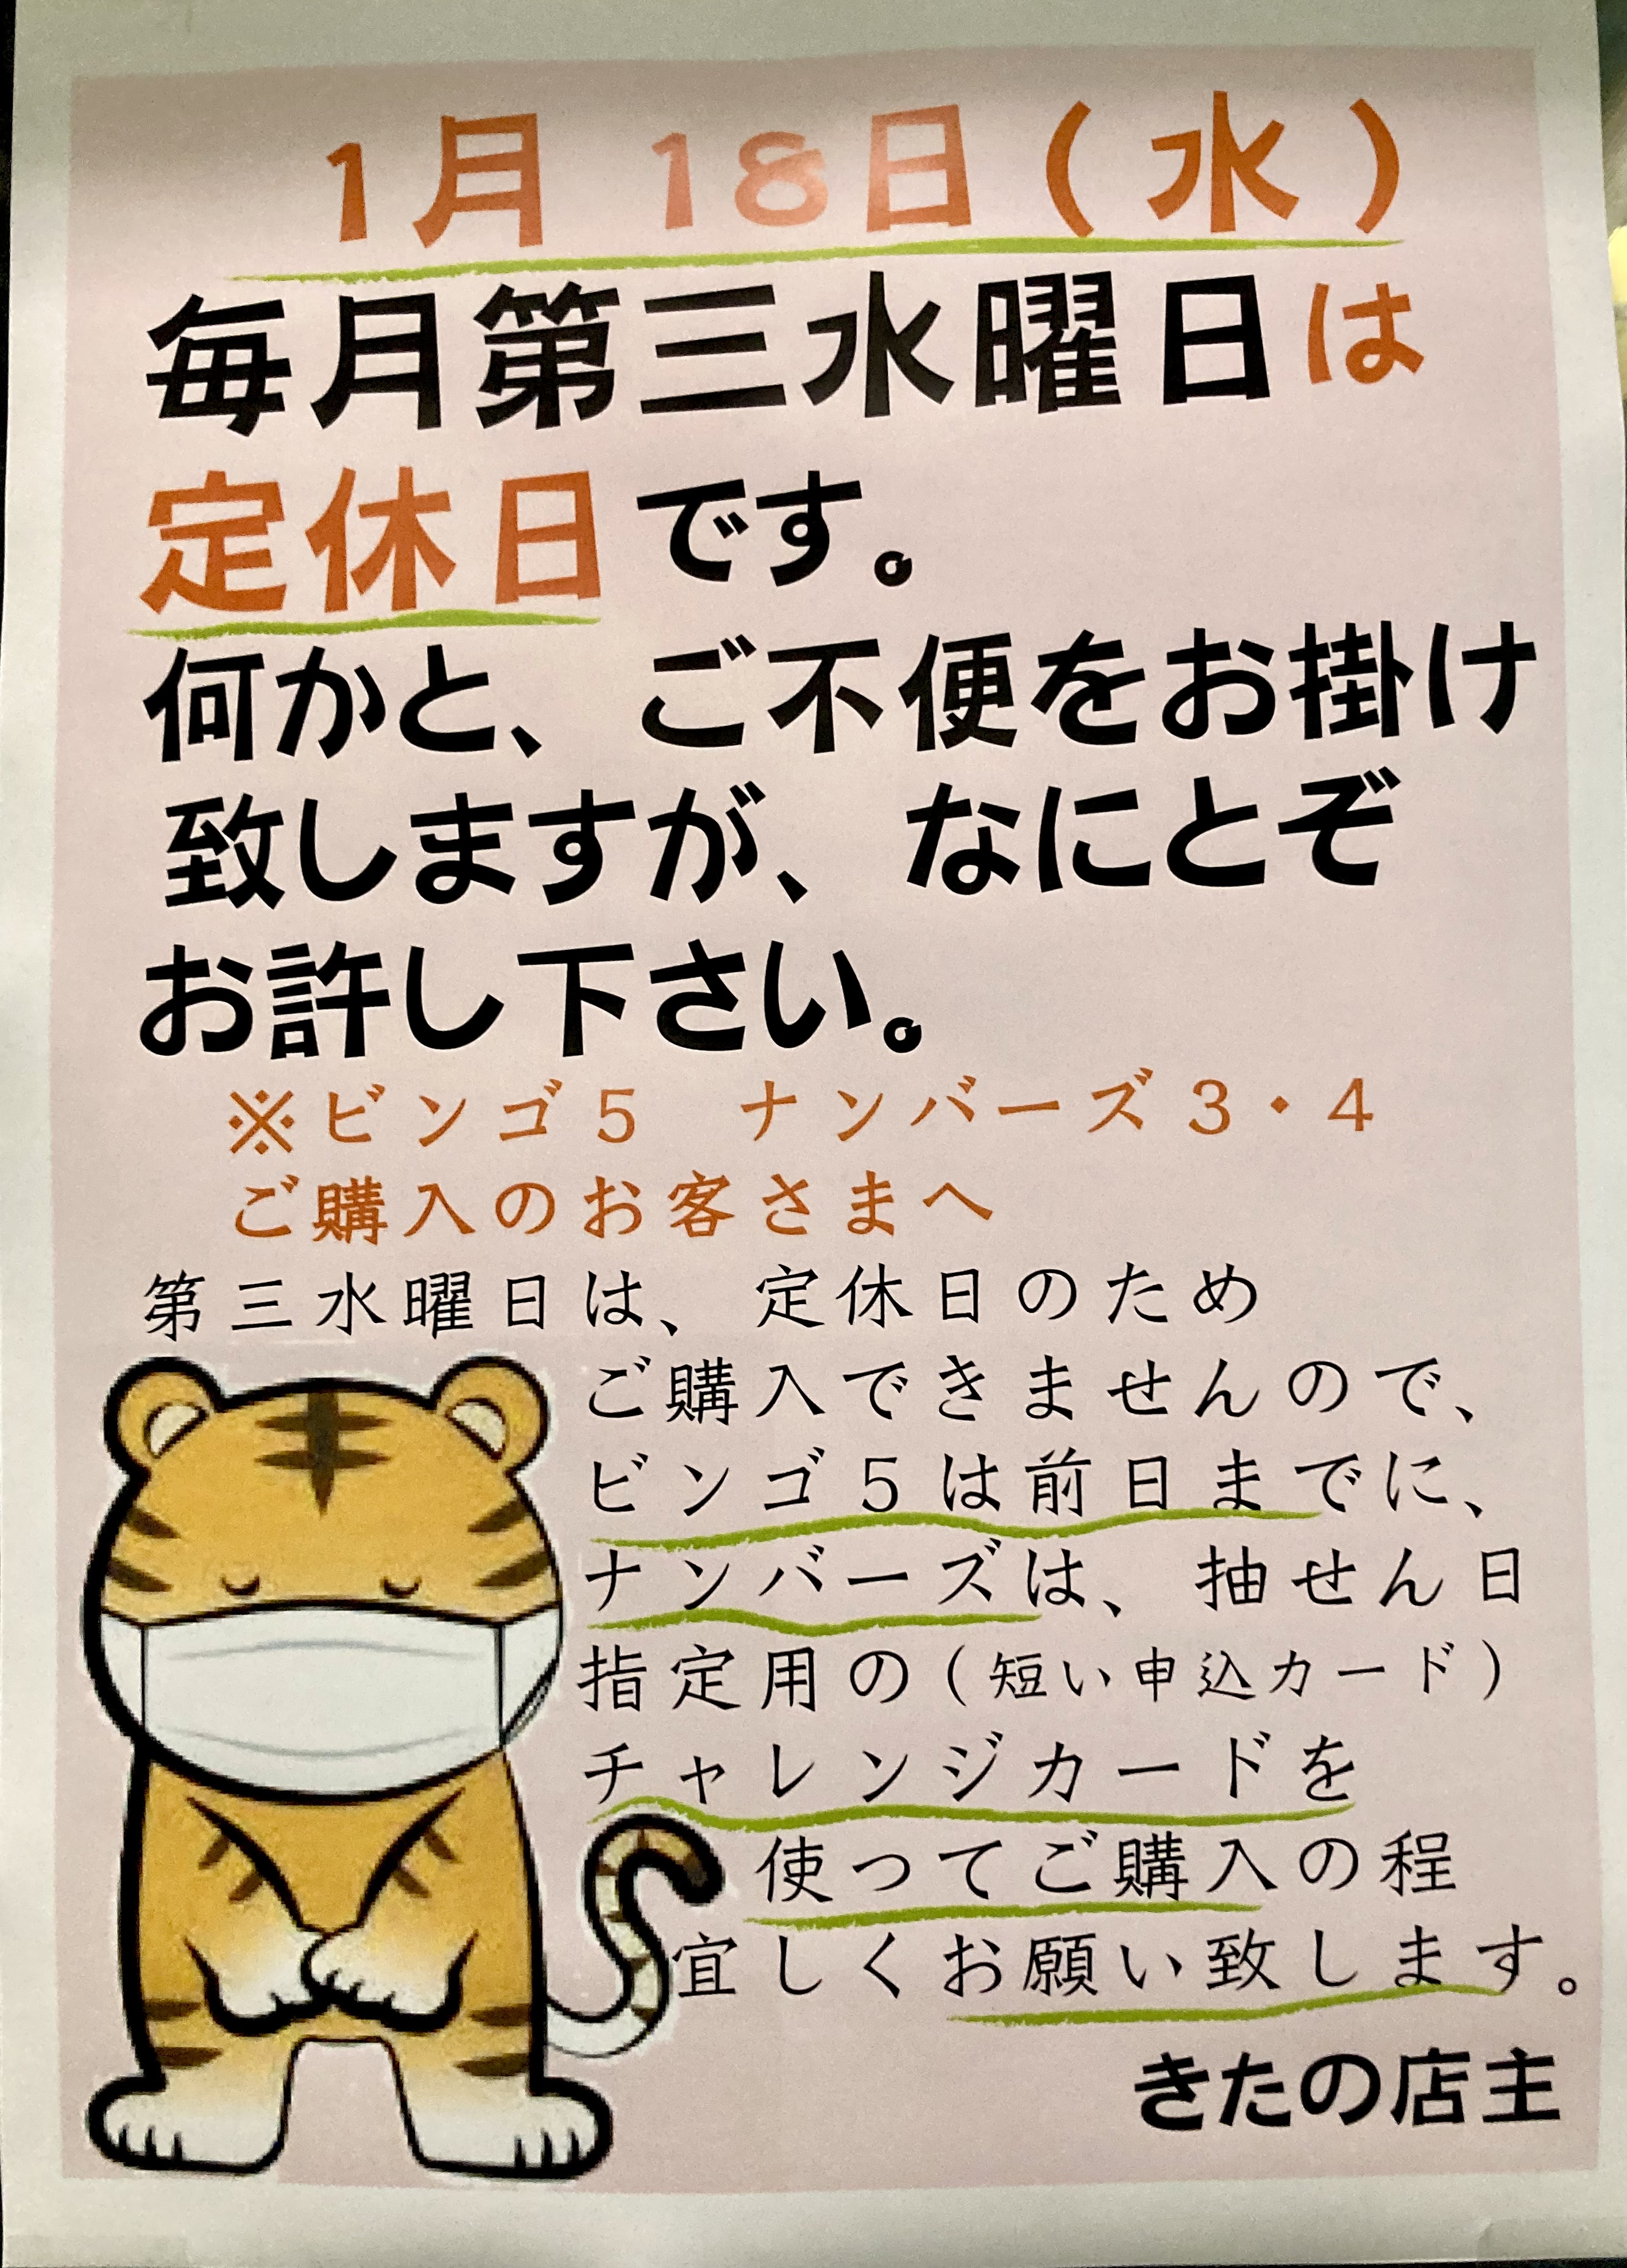 1月 18日(水)
毎月第三水曜日は
定休日です。
何かと、ご不便をお掛け
致しますが、なにとぞ
お許し下さい。
※ビンゴ5　ナンバーズ3・4
ご購入のお客さまへ
第三水曜日は、定休日のため
ご購入できませんので、
ビンゴ5は前日までに、
ナンバーズは、抽せん日
指定用の(短い申込カード)
チャレンジカードを
使ってご購入の程
宜しくお願い致します。
きたの店主